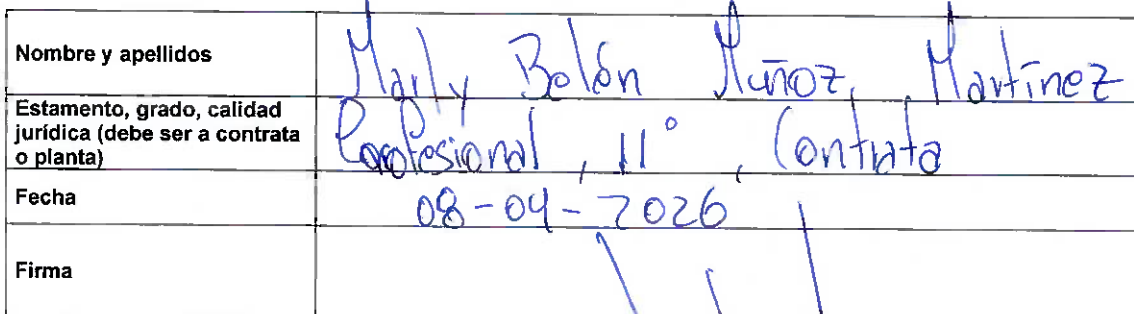 Nombre y apellidos
Marly Belén Muñoz, Martínez
Estamento, grado, calidad
jurídica (debe ser a contrata
o planta)
Profesional, 11°, Contrata
Fecha
08-04-2026
Firma